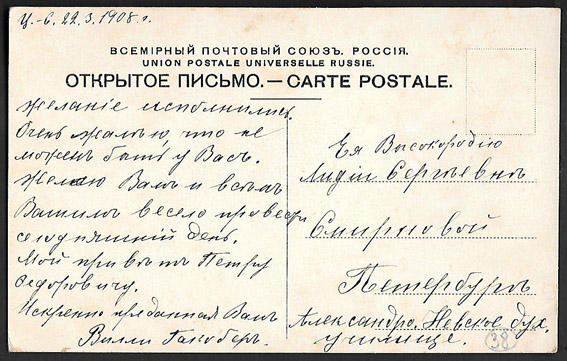 Ц.-С. 22.3.1908 г.
ВСЕМІРНЫЙ ПОЧТОВЫЙ СОЮЗЪ. РОССІЯ.
UNION POSTALE UNIVERSELLE RUSSIE.
ОТКРЫТОЕ ПИСЬМО.—CARTE POSTALE.
Желаніе исполнилъ.
Очень жалѣю, что не
можемъ быть у Васъ.
Желаю Вамъ и всѣмъ
Вашимъ весело провести
сегодняшній день.
Мой привѣтъ Петру
Федоровичу.
Искренно преданная Вамъ
Вилли
Ея Высокородію
Лидіи Сергѣевнѣ
Смирновой
Петербургъ
Александро-Невское дух.
училище.
38